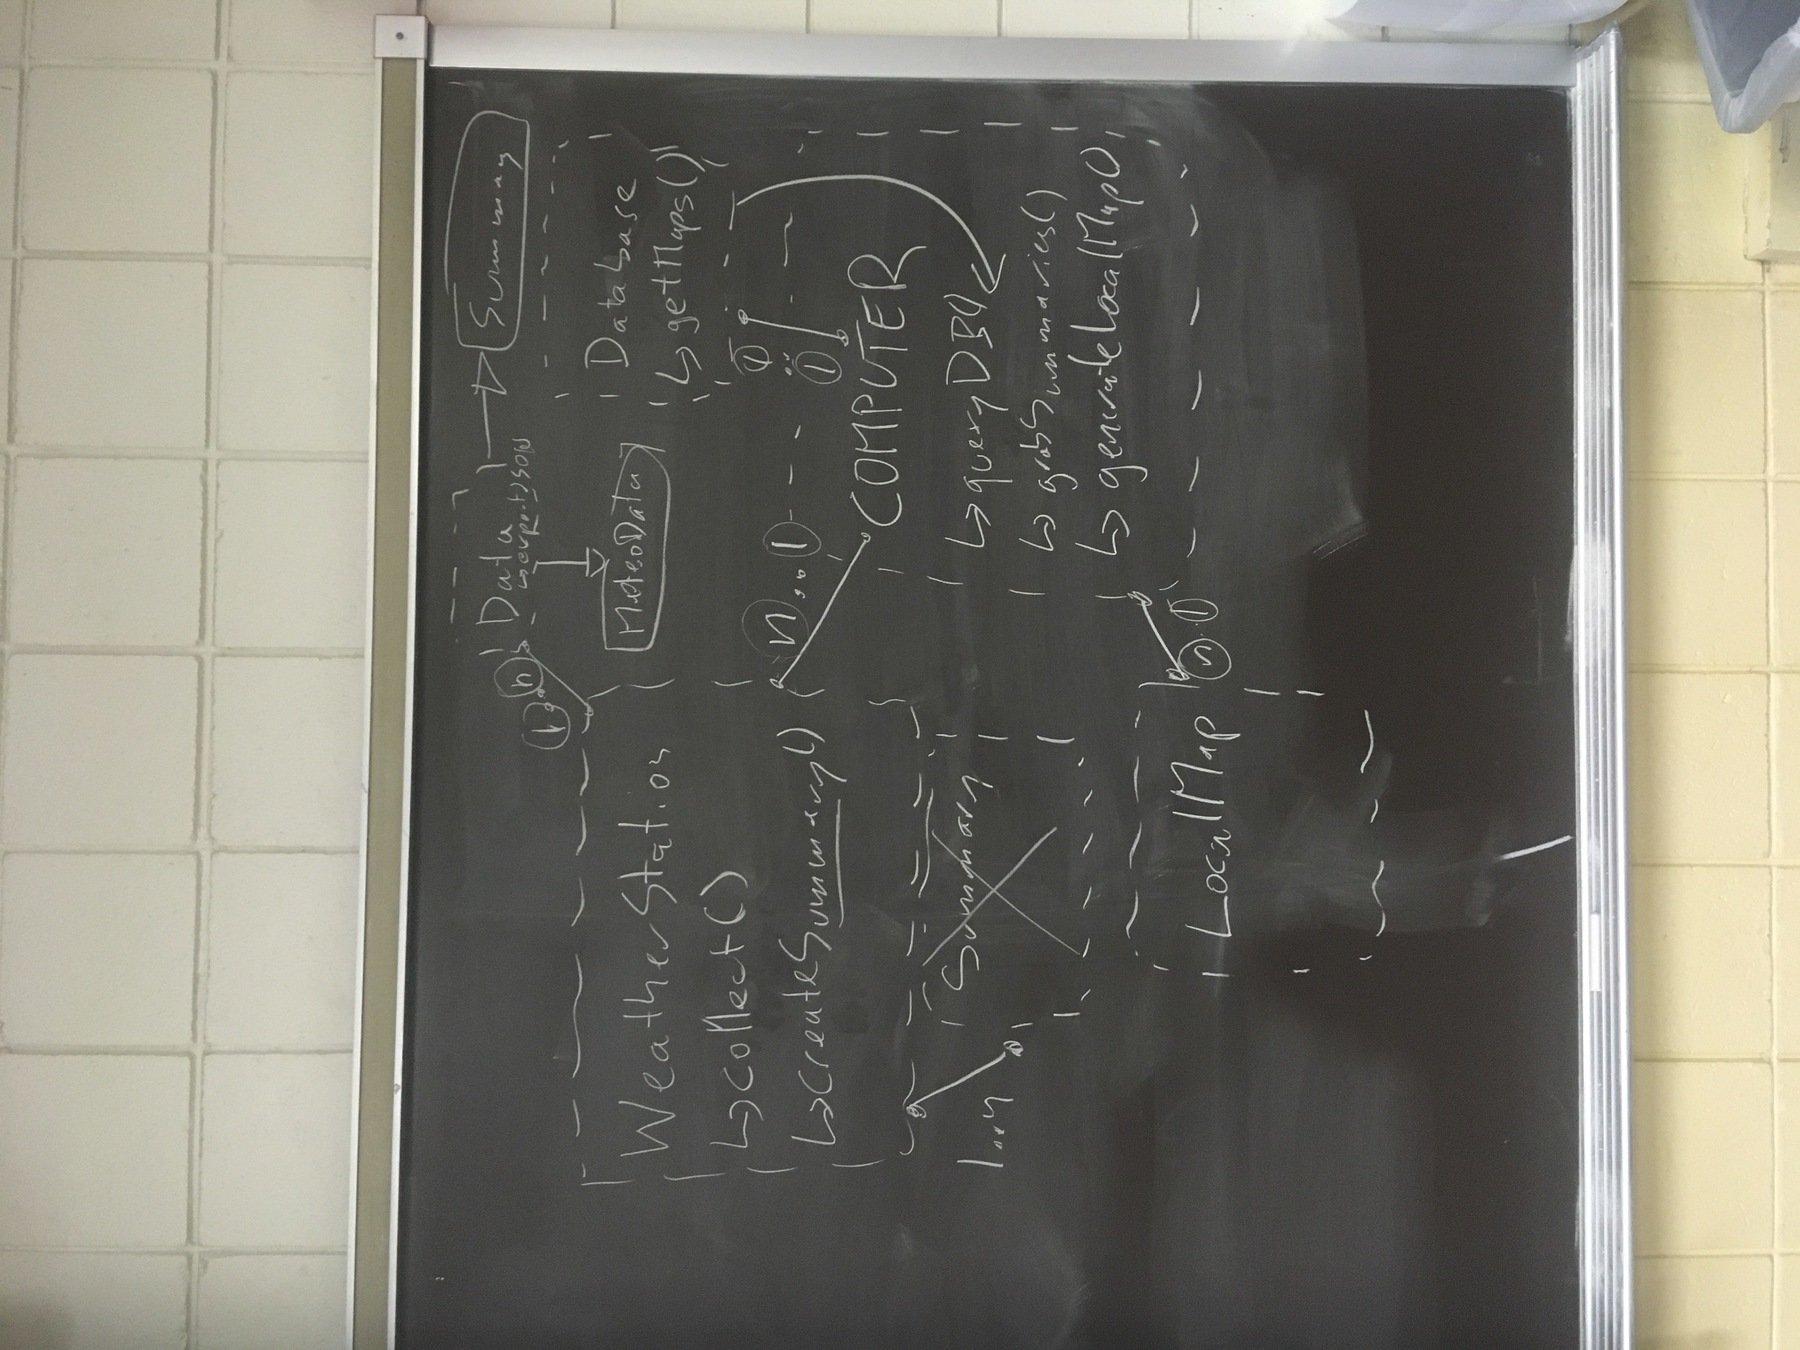 Data
Summary
MeteoData
1
n
WeatherStation
↳ collect()
↳ createSummary()
Database
↳ getMaps()
1
..
1
n..1
COMPUTER
↳ queryDB()
↳ grabSummaries()
↳ generateLocalMap()
Summary
1..n
LocalMap
n..1